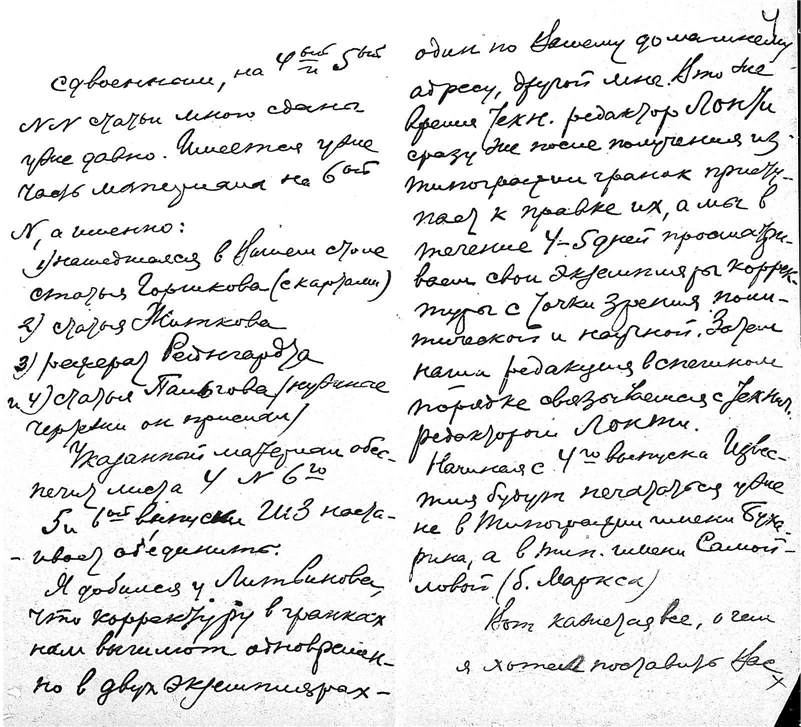 сдвоенным, на 4ый и 5ый
NN статьи много сданы
уже давно. Имеется уже
часть материала на 6ой
N, а именно:
1) нашедшаяся в Вашем столе
статья Горшкова (с картами)
2) статья Житкова
3) реферат Рейнгардта
и 4) статья Пальгова /нужные
чертежи он прислал/
Указанный материал обес-
печит листа 4 N 6го
5 и 6ой выпуски ИЗ наста-
ивает объединить.
Я добился у Литвинова,
что корректуру в гранках
нам вышлют одновремен-
но в двух экземплярах –
4
один по Вашему домашнему
адресу, другой мне. В то же
время техн. редактор ЛОНТИ
сразу же после получения из
типографии гранок присту-
пает к правке их, а мы в
течение 4–5 дней просматри-
ваем свои экземпляры коррек-
туры с точки зрения поли-
тической и научной. Затем
наша редакция в спешном
порядке связывается с технич.
редактором ЛОНТИ.
Начиная с 4го выпуска Извес-
тия будут печататься уже
не в типографии имени Буха-
рина, а в тип. имени Самой-
ловой (б. Маркса)
Вот кажется все, о чем
я хотел поставить Вас